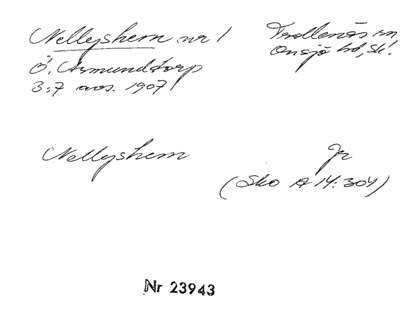 Nellyshem nr 1
Trollenäs sn,
Onsjö hd, Sk.
Ö. Asmundtorp
3:7 avs. 1907
Nellyshem
Jr
(Sko A 14:304)
Nr 23943